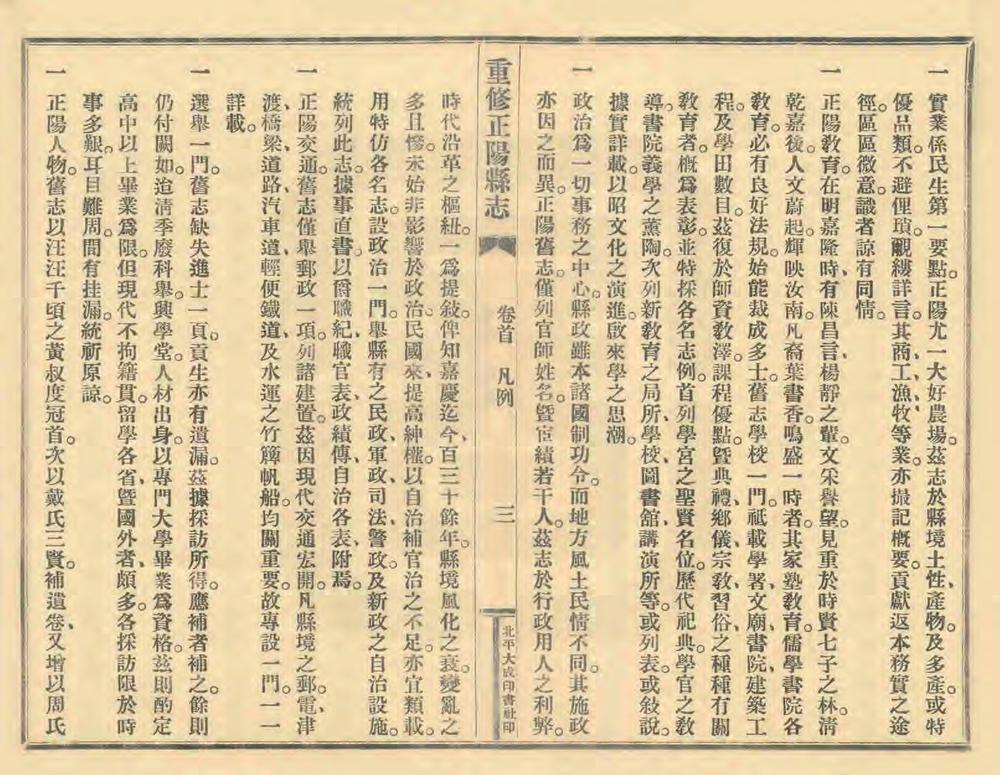 一 實業係民生第一要點。正陽尤一大好農場。茲志於縣境土性、產物。及多產。或特
優品類。不避俚瑣。覼縷詳言。其商、工、漁、牧、等業。亦撮記概要。貢獻返本務實之途
徑。區區微意。識者諒有同情。
一 正陽敎育。在明嘉隆時、有陳昌言、楊靜之輩。文采譽望。見重於時賢七子之林。清
乾嘉後。人文蔚起。輝映汝南。凡裔葉書香。鳴盛一時者。其家塾敎育。儒學書院各
敎育。必有良好法規。始能裁成多士。舊志學校一門。祗載學署、文廟、書院、建築工
程。及學田數目。茲復於師資敎澤。課程優點。曁典禮、鄉儀、宗敎、習俗、之種種有關
敎育者。概爲表彰。並特採各名志例。首列學宮之聖賢名位。歷代祀典。學官之敎
導。書院義學之薰陶。次列新敎育之局所、學校、圖書舘、講演所等。或列表。或敍說。
據實詳載。以昭文化之演進。啟來學之思溯。
一 政治爲一切事務之中心。縣政雖本諸國制功令。而地方風土民情不同。其施政
亦因之而異。正陽舊志。僅列官師姓名。曁宦績若干人。茲志於行政用人之利弊。
重修正陽縣志
卷首 凡例
三
北平大成印書社印
時代沿革之樞紐。一爲提敍。俾知嘉慶迄今、百三十餘年。縣境風化之衰。變亂之
多且慘。未始非影響於政治。民國來、提高紳權。以自治補官治之不足。亦宜類載。
用特仿各名志。設政治一門。舉縣有之民政、軍政、司法、警政、及新政之自治設施。
統列此志。據事直書。以爵職紀、職官表、政績傳、自治各表、附焉。
一 正陽交通。舊志僅舉郵政一項。列諸建置。茲因現代交通宏開。凡縣境之郵、電、津
渡、橋梁、道路、汽車道、輕便鐵道、及水運之竹簰帆船。均關重要。故專設一門。一一
詳載。
一 選舉一門。舊志缺失進士一頁。貢生亦有遺漏。茲據採訪所得。應補者補之。餘則
仍付闕如。迨清季廢科舉。興學堂。人材出身。以專門大學畢業爲資格。茲則酌定
高中以上畢業爲限。但現代不拘籍貫。留學各省、曁國外者、頗多。各採訪限於時
事多艱。耳目難周。間有挂漏。統祈原諒。
一 正陽人物。舊志以汪汪千頃之黃叔度冠首。次以戴氏三賢。補遺卷、又增以周氏